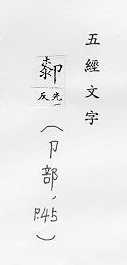 五經文字
厀
先一
反
(卩部, P.45)